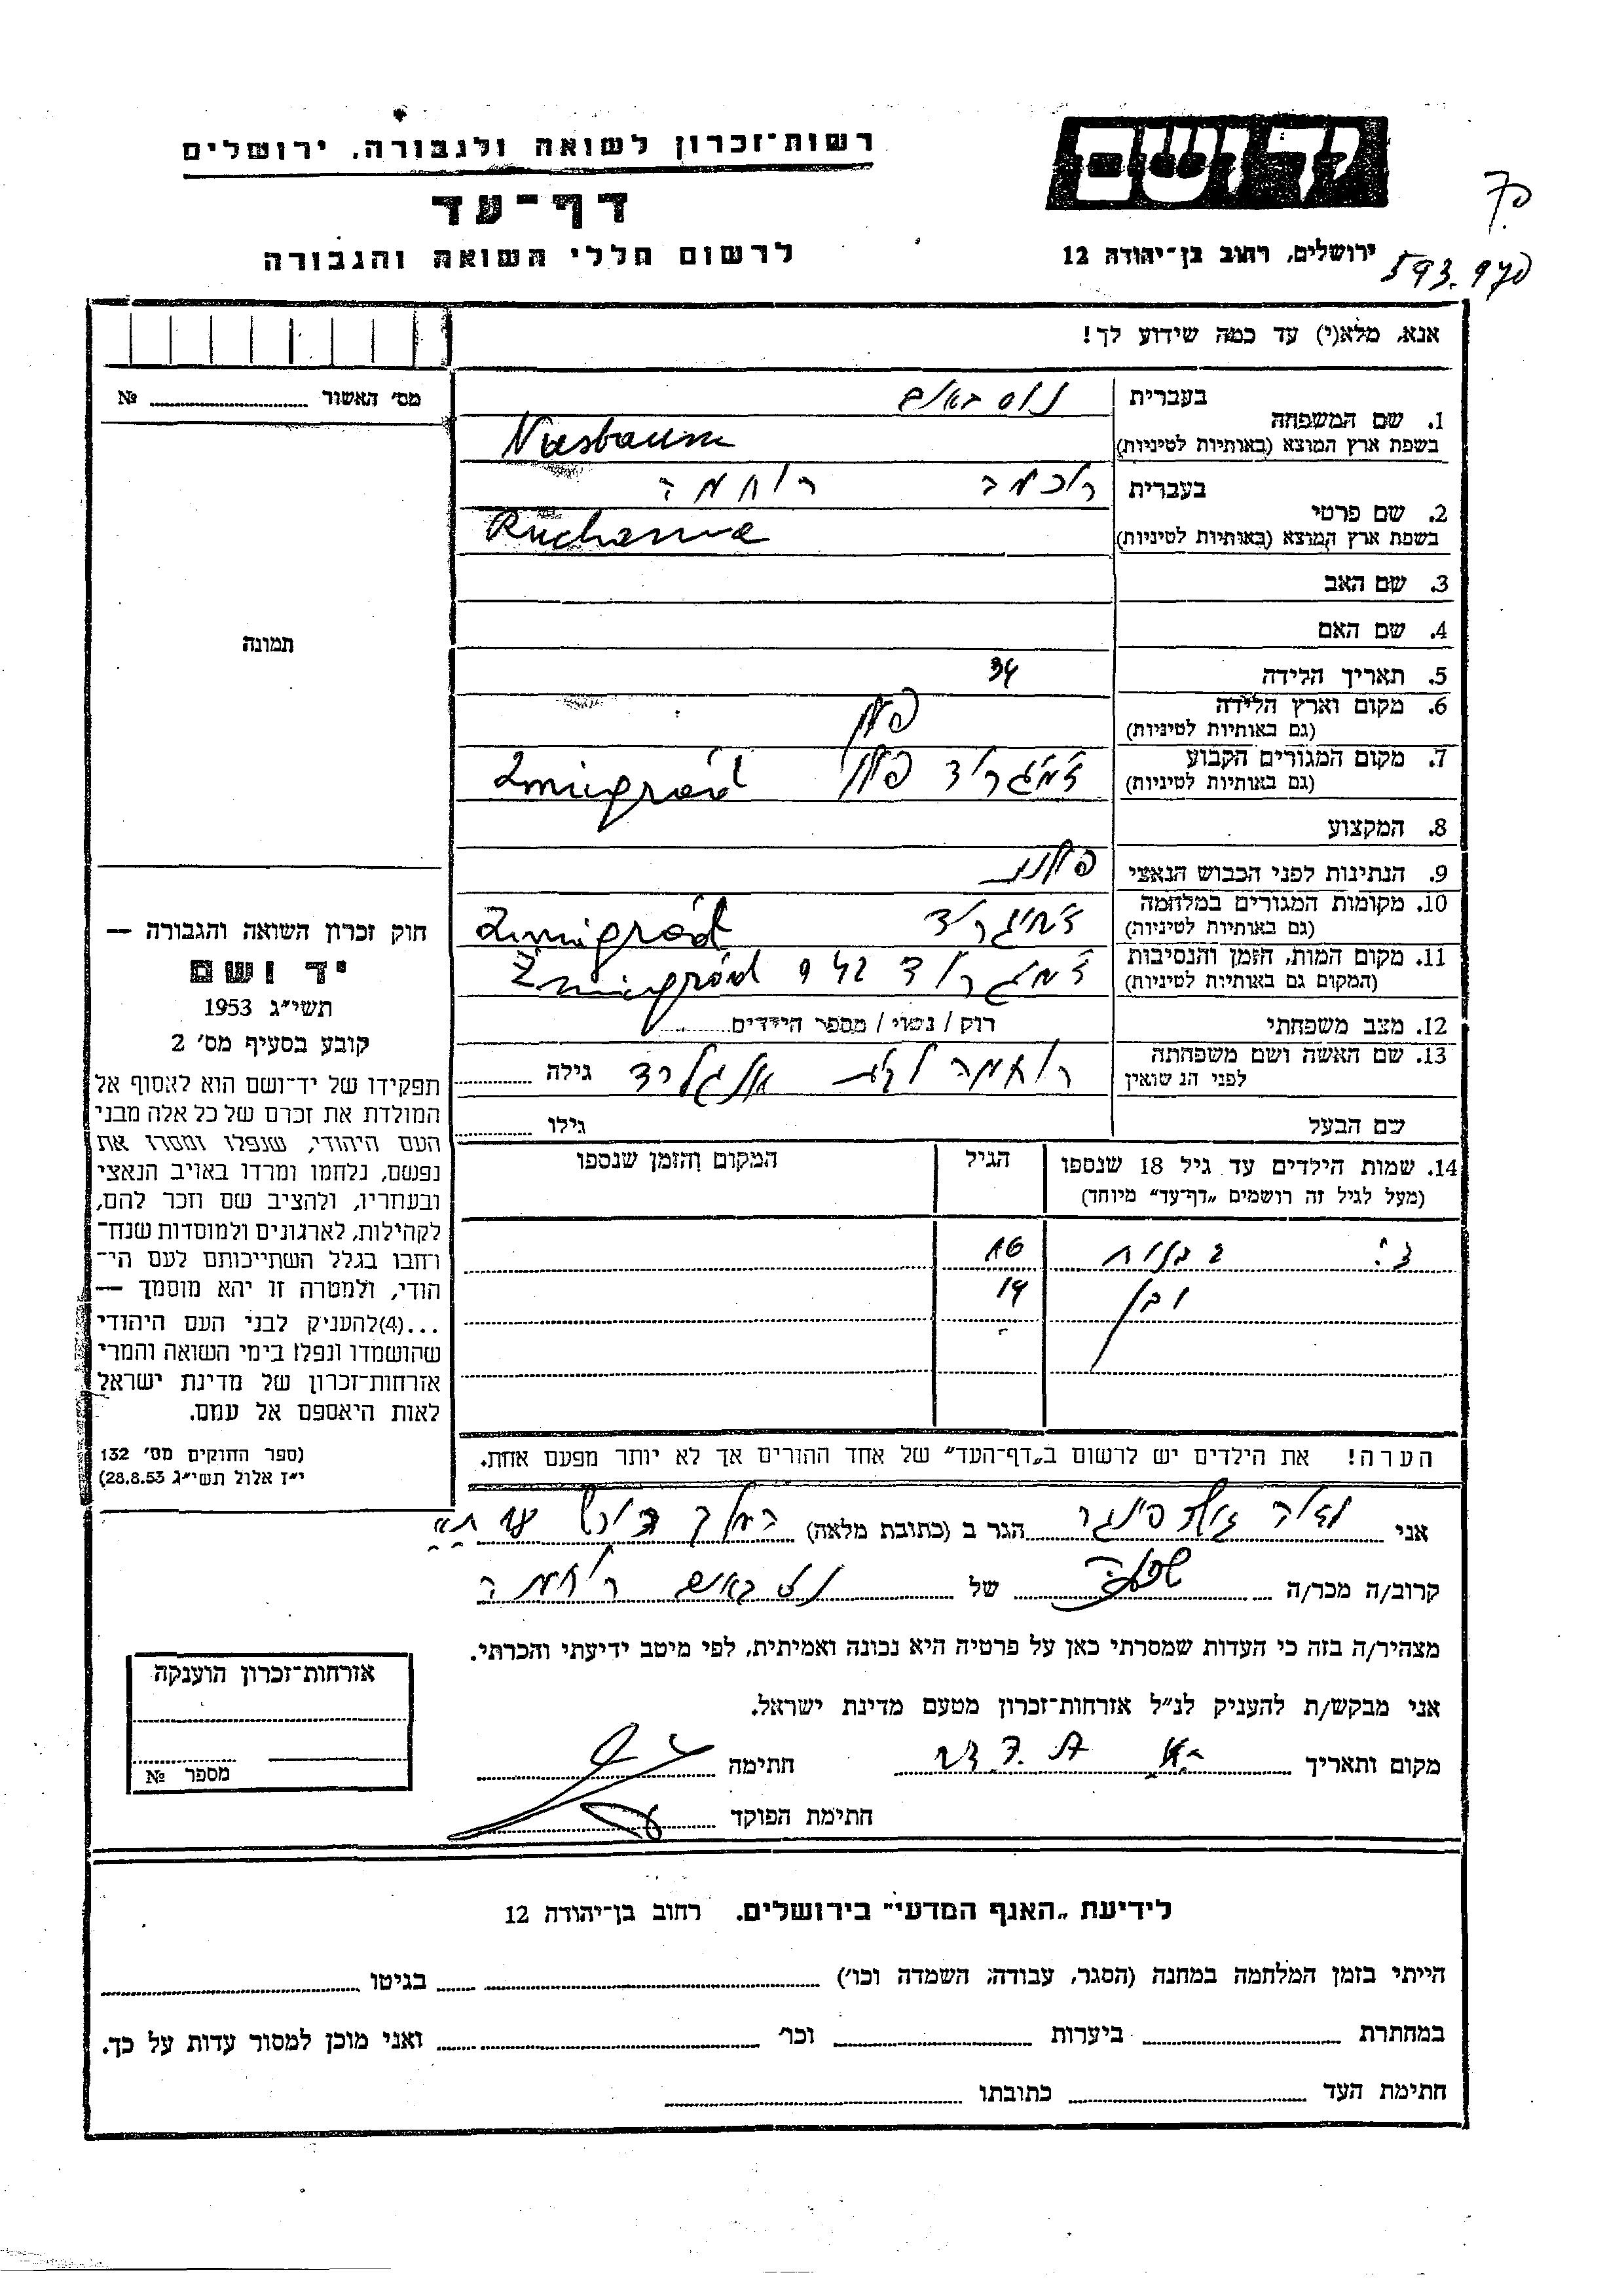 רשות־זכרון לשואה ולגבורה, ירושלים
דף־עד
לרשום חללי השואה והגבורה
יד ושם
ירושלים, רחוב בן־יהודה 12
593.970
אנא, מלא(י) עד כמה שידוע לך!
מס׳ האשור № 
1. שם המשפחה
בעברית
נוסבאום
בשפת ארץ המוצא (באותיות לטיניות)
Nusbaum
2. שם פרטי
בעברית
רוחמה
בשפת ארץ המוצא (באותיות לטיניות)
Ruchama
3. שם האב
4. שם האם
5. תאריך הלידה
34
6. מקום וארץ הלידה
(גם באותיות לטיניות)
פולין
7. מקום המגורים הקבוע
(גם באותיות לטיניות)
זמיגרוד פולין Zmigród
8. המקצוע
9. הנתינות לפני הכבוש הנאצי
פולנית
10. מקומות המגורים במלחמה
(גם באותיות לטיניות)
זמיגרוד Zmigród
11. מקום המות, הזמן והנסיבות
(המקום גם באותיות לטיניות)
זמיגרוד 942 Zmigród
12. מצב משפחתי
רוק / נשוי / מספר הילדים
13. שם האשה ושם משפחתה
לפני הנשואין
רוחמה לבית גילה
שם הבעל
גילו
14. שמות הילדים עד גיל 18 שנספו
(מעל לגיל זה רושמים „דף־עד״ מיוחד)
הגיל
המקום והזמן שנספו
2 בנות 16
ובן 14
הערה! את הילדים יש לרשום ב„דף־העד״ של אחד ההורים אך לא יותר מפעם אחת.
תמונה
חוק זכרון השואה והגבורה —
יד ושם
תשי״ג 1953
קובע בסעיף מס׳ 2
תפקידו של יד־ושם הוא לאסוף אל
המולדת את זכרם של כל אלה מבני
העם היהודי, שנפלו ומסרו את
נפשם, נלחמו ומרדו באויב הנאצי
ובעוזריו, ולהציב שם וזכר להם,
לקהילות, לארגונים ולמוסדות שנח־
רחבו בגלל השתייכותם לעם הי־
הודי, ולמטרה זו יהא מוסמך —
...(4)להעניק לבני העם היהודי
שהושמדו ונפלו בימי השואה והמרי
אזרחות־זכרון של מדינת ישראל
לאות היאספם אל עמם.
(ספר החוקים מס׳ 132
י״ז אלול תשי״ג 28.8.53)
אני הגר ב (כתובת מלאה)
קרוב/ה מכר/ה של רוחמה
מצהיר/ה בזה כי העדות שמסרתי כאן על פרטיה היא נכונה ואמיתית, לפי מיטב ידיעתי והכרתי.
אני מבקש/ת להעניק לנ״ל אזרחות־זכרון מטעם מדינת ישראל.
מקום ותאריך חתימה
חתימת הפוקד
אזרחות־זכרון הוענקה
מספר №
לידיעת „האגף המדעי״ בירושלים. רחוב בן־יהודה 12
הייתי בזמן המלחמה במחנה (הסגר, עבודה, השמדה וכו׳) בגיטו
במחתרת ביערות וכו׳ ואני מוכן למסור עדות על כך.
חתימת העד כתובתו